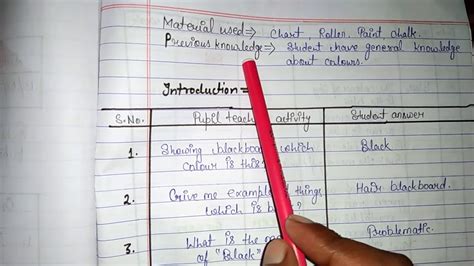 Material used ⇒ Chart, Roller, Paint, chalk.
Previous knowledge ⇒ Student have general knowledge
about colours.
Introduction =
S.No. Pupil teach activity Student answer
1. Showing blackboard which Black
colour is this
2. Give me example of things Hair blackboard.
which is ?
3. What is the Problematic.
of "Black"